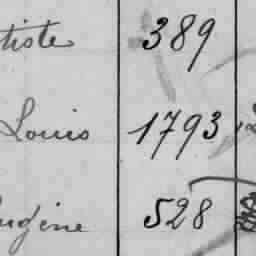 tiste 389
Louis 1793
ugène 528